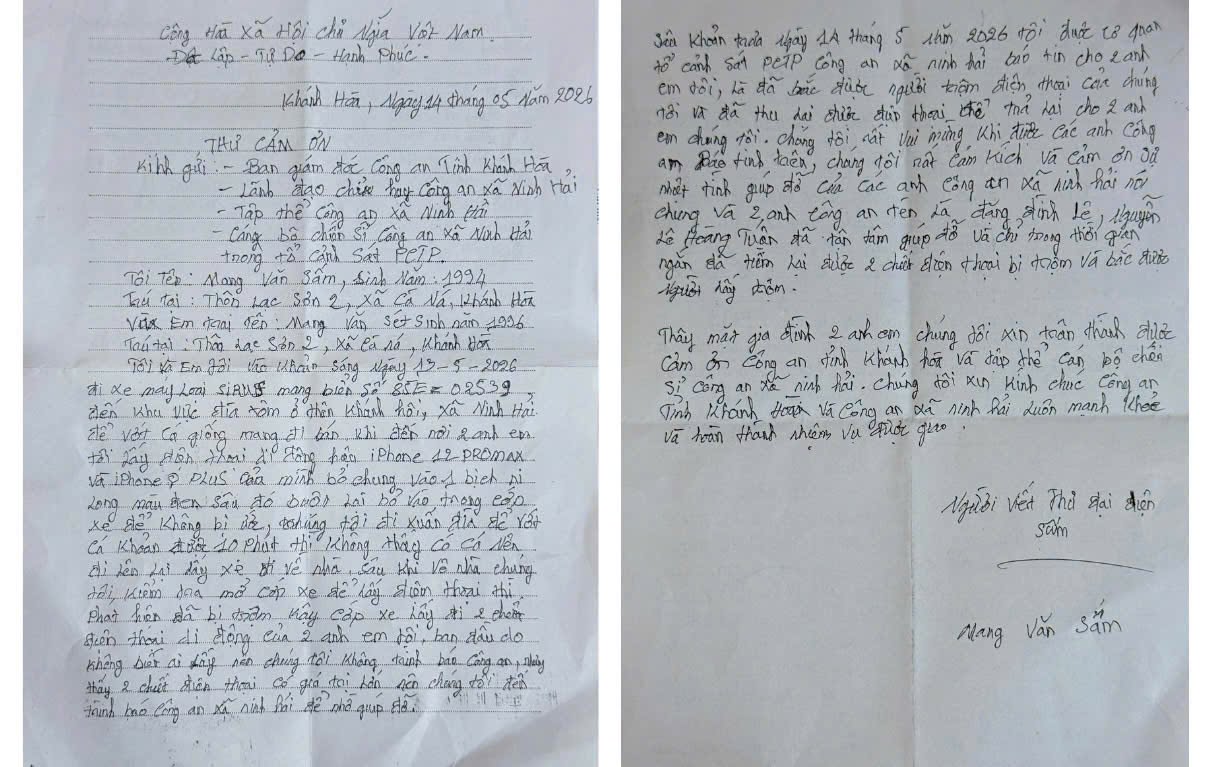 Cộng Hòa Xã Hội chủ Nghĩa Việt Nam
Độc Lập - Tự Do - Hạnh Phúc.
Khánh Hòa, Ngày 14 tháng 05 Năm 2026
THƯ CẢM ƠN
Kính gửi: - Ban giám đốc Công an Tỉnh Khánh Hòa
- Lãnh đạo chỉ huy Công an xã Ninh Hải
- Tập thể Công an xã Ninh Hải
- Cáng bộ chiến sĩ Công an xã Ninh Hải
trong tổ Cảnh Sát PCTP.
Tôi tên: Mang Văn Sắm, Sinh Năm: 1994
Trú tại: Thôn Lạc Sơn 2, xã Cà Ná, Khánh Hòa
Và Em trai tên: Mang Văn Sét Sinh năm 1996
Trú tại: Thôn Lạc Sơn 2, xã Cà ná, Khánh Hòa
Tôi và Em tôi vào Khoản Sáng Ngày 13-5-2026
đi xe máy Loại SiRUS mang biển Số 85E = 02539
đến khu vực đìa tôm ở thôn Khánh hội, xã Ninh Hải
để vớt Cá giống mang đi bán, khi đến nơi 2 anh em
tôi lấy điện thoại di động hiệu iPhone 12 PROMAX
và iPhone 8 PLUS của mình bỏ chung vào 1 bịch ni
Long màu đen sau đó buột lại bỏ vào trong cốp
xe để không bị ướt, chúng tôi đi xuấn đìa để vớt
Cá Khoản được 10 Phút thì không thấy có Cá Nên
đi lên lại lấy xe đi về nhà, sau khi về nhà chúng
tôi, kiểm tra mở cốp xe để lấy điện thoại thì
Phát hiện đã bị trộm cậy cốp xe lấy đi 2 chiếc
điện thoại di động của 2 anh em tôi, ban đầu do
không biết ai lấy nên chúng tôi không trình báo Công an,
thấy 2 chiết điện thoại có giá trị lớn nên chúng tôi đến
trình báo Công an xã ninh hải để nhờ giúp đỡ.
Sau khoản trưa ngày 14 tháng 5 năm 2026 tôi được cơ quan
tổ cảnh sát PCTP Công an xã ninh hải báo tin cho 2 anh
em tôi, là đã bắc được người trộm điện thoại của chúng
tôi và đã thu lại được điện thoại để trả lại cho 2 anh
em chúng tôi. Chúng tôi rất vui mừng khi được các anh Công
an báo tin trên, chúng tôi rất cảm kích và cảm ơn sự
nhiệt tình giúp đỡ của các anh công an xã ninh hải nói
chung và 2 anh công an tên là đặng đình Lê, Nguyễn
Lê Hoàng Tuấn đã tận tâm giúp đỡ và chỉ trong thời gian
ngắn đã tiềm lại được 2 chiết điện thoại bị trộm và bắc được
người lấy trộm.
Thây mặt gia đình 2 anh em chúng tôi xin toân thành được
Cảm ơn Công an tỉnh Khánh hòa và tập thể cán bộ chiến
sĩ Công an xã ninh hải. Chúng tôi xin kính chúc Công an
Tỉnh Khánh Hòa và Công an xã ninh hải luôn mạnh khỏe
và hoàn thành nhiệm vụ được giao.
Người viết Thư đại diện
Sắm
Mang Văn Sắm